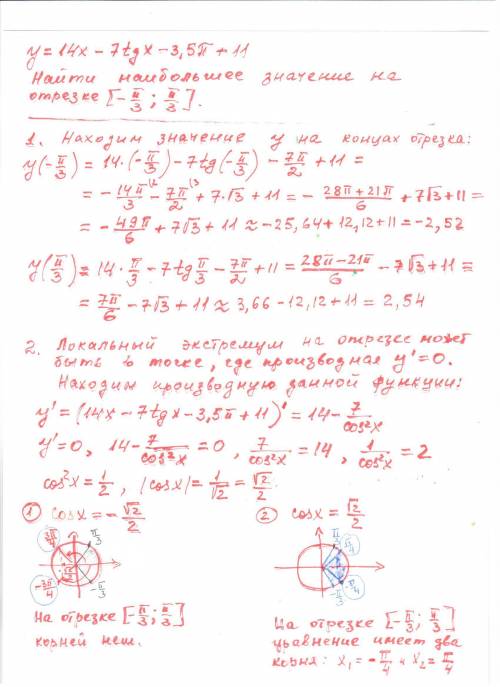 y = 14x − 7tgx − 3,5π + 11
Найти наибольшее значение на
отрезке [−π/3; π/3].
1. Находим значение y на концах отрезка:
y(−π/3) = 14·(−π/3) − 7tg(−π/3) − 7π/2 + 11 =
= −14π/3 \2 − 7π/2 \3 + 7·√3 + 11 = − (28π+21π)/6 + 7√3 + 11 =
= −49π/6 + 7√3 + 11 ≈ −25,64 + 12,12 + 11 = −2,52
y(π/3) = 14·π/3 − 7tg π/3 − 7π/2 + 11 = (28π−21π)/6 − 7√3 + 11 =
= 7π/6 − 7√3 + 11 ≈ 3,66 − 12,12 + 11 = 2,54
2. Локальный экстремум на отрезке может
быть в точке, где производная y'=0.
Находим производную данной функции:
y' = (14x − 7tgx − 3,5π + 11)' = 14 − 7/cos²x
y'=0, 14 − 7/cos²x = 0, 7/cos²x = 14, 1/cos²x = 2
cos²x = 1/2, |cosx| = 1/√2 = √2/2
1 cosx = −√2/2
3π/4 π/3
−3π/4 −π/3
На отрезке [−π/3; π/3]
корней нет.
2 cosx = √2/2
π/3 π/4
−π/3 −π/4
На отрезке [−π/3; π/3]
уравнение имеет два
корня: x₁ = −π/4 и x₂ = π/4